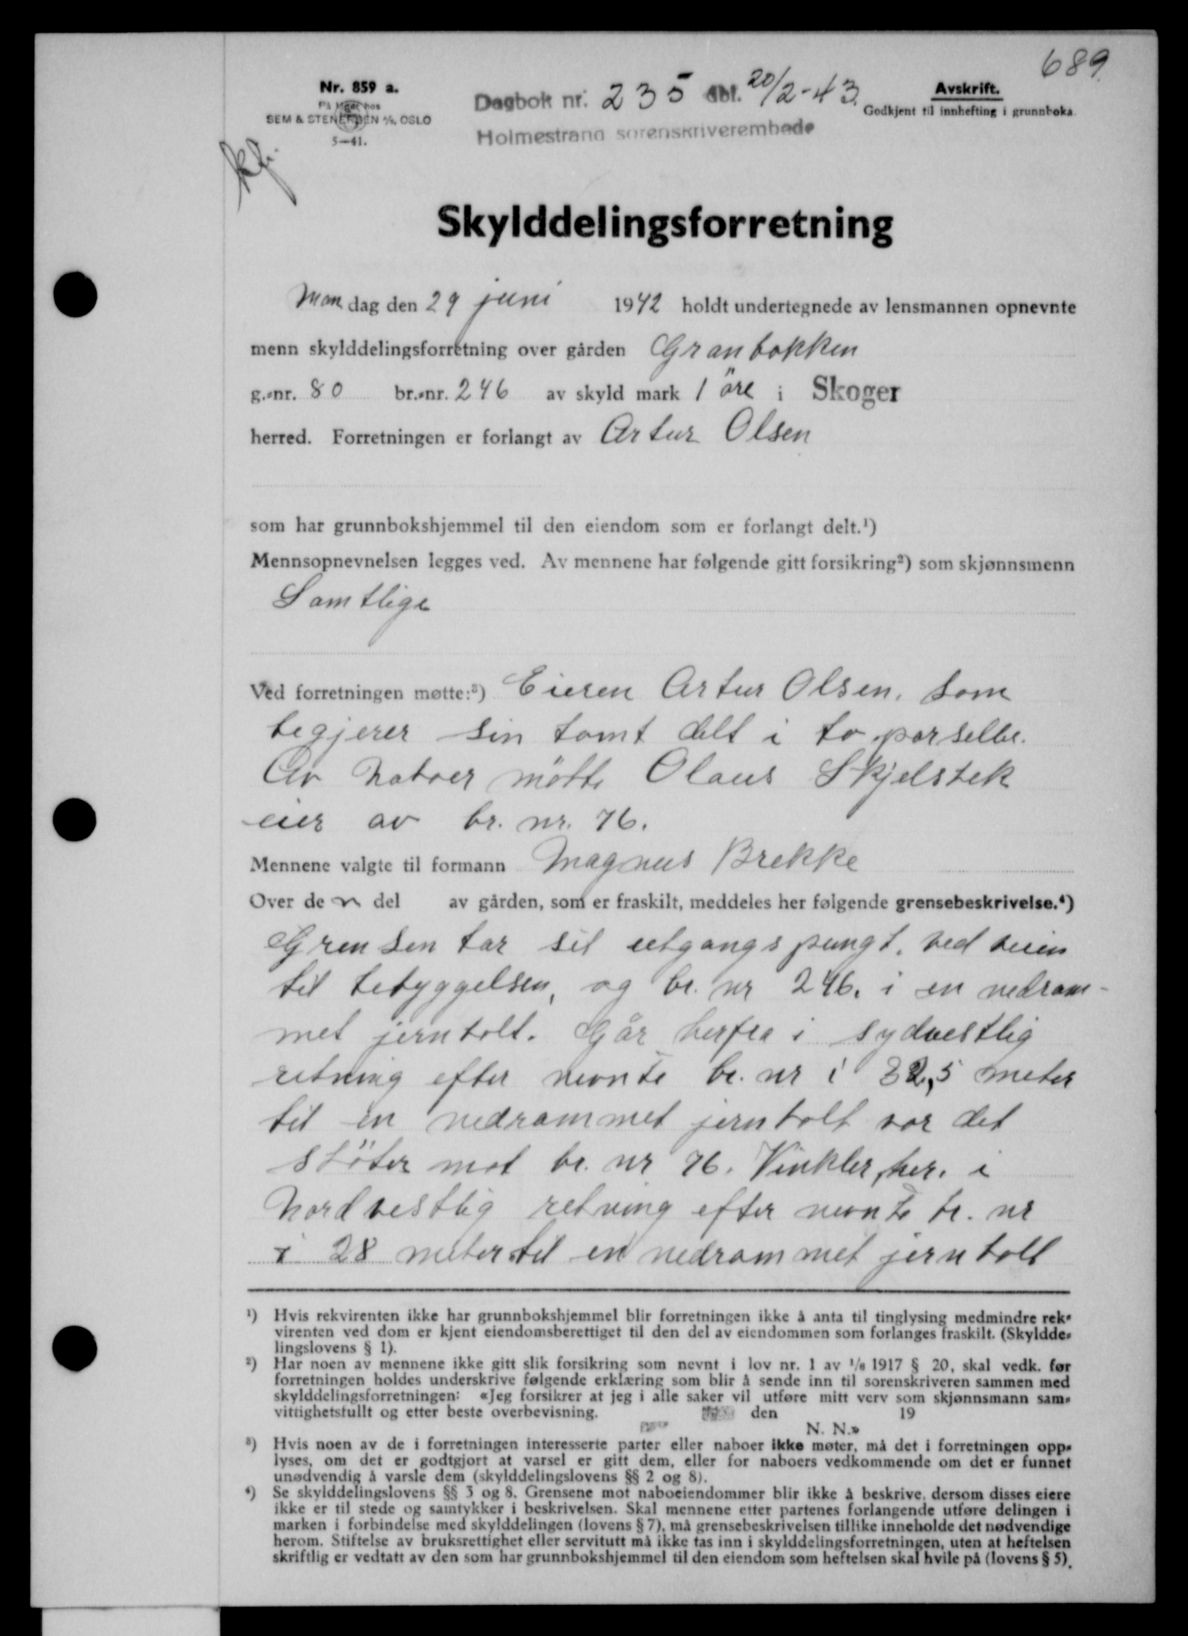 689
Nr. 859 a.
På lager hos
SEM & STENERSEN A/S, OSLO
5-41.
Dagbok nr. 235 dbl. 20/2-43
Holmestrand sorenskriverembede
Avskrift.
Godkjent til innhefting i grunnboka.
Skylddelingsforretning
Man dag den 29 juni 1942 holdt undertegnede av lensmannen opnevnte
menn skylddelingsforretning over gården Granbakken
g.-nr. 80 br.-nr. 246 av skyld mark 1 öre i Skoger
herred. Forretningen er forlangt av Artur Olsen
som har grunnbokshjemmel til den eiendom som er forlangt delt.¹)
Mennsopnevnelsen legges ved. Av mennene har følgende gitt forsikring²) som skjønnsmenn
Samtlige
Ved forretningen møtte:³) Eieren Artur Olsen, som
begjerer sin tomt delt i to parseller.
Av naboer mötte Olaus Skjelsbek
eier av br. nr. 76.
Mennene valgte til formann Magnus Brekke
Over de n del av gården, som er fraskilt, meddeles her følgende grensebeskrivelse.⁴)
Grensen tar sit utgangspungt. ved veien
til bebyggelsen, og br. nr 246. i en nedram-
met jernbolt. Går herfra i sydvestlig
retning efter nevnte br. nr i 32,5 meter
til en nedrammet jernbolt vor det
støter mot br. nr 76. Vinkler, her. i
Nordvestlig retning efter nevnte br. nr
i 28 meter til en nedrammet jernbolt
¹) Hvis rekvirenten ikke har grunnbokshjemmel blir forretningen ikke å anta til tinglysing medmindre rek-
virenten ved dom er kjent eiendomsberettiget til den del av eiendommen som forlanges fraskilt. (Skyldde-
lingslovens § 1).
²) Har noen av mennene ikke gitt slik forsikring som nevnt i lov nr. 1 av 1/6 1917 § 20, skal vedk. før
forretningen holdes underskrive følgende erklæring som blir å sende inn til sorenskriveren sammen med
skylddelingsforretningen: «Jeg forsikrer at jeg i alle saker vil utføre mitt verv som skjønnsmann sam-
vittighetsfullt og etter beste overbevisning. den 19
N. N.»
³) Hvis noen av de i forretningen interesserte parter eller naboer ikke møter, må det i forretningen opp-
lyses, om det er godtgjort at varsel er gitt dem, eller for naboers vedkommende om det er funnet
unødvendig å varsle dem (skylddelingslovens §§ 2 og 8).
⁴) Se skylddelingslovens §§ 3 og 8. Grensene mot naboeiendommer blir ikke å beskrive, dersom disses eiere
ikke er til stede og samtykker i beskrivelsen. Skal mennene etter partenes forlangende utføre delingen i
marken i forbindelse med skylddelingen (lovens § 7), må grensebeskrivelsen tillike inneholde det nødvendige
herom. Stiftelse av bruksrettighet eller servitutt må ikke tas inn i skylddelingsforretningen, uten at heftelsen
skriftlig er vedtatt av den som har grunnbokshjemmel til den eiendom som heftelsen skal hvile på (lovens § 5).